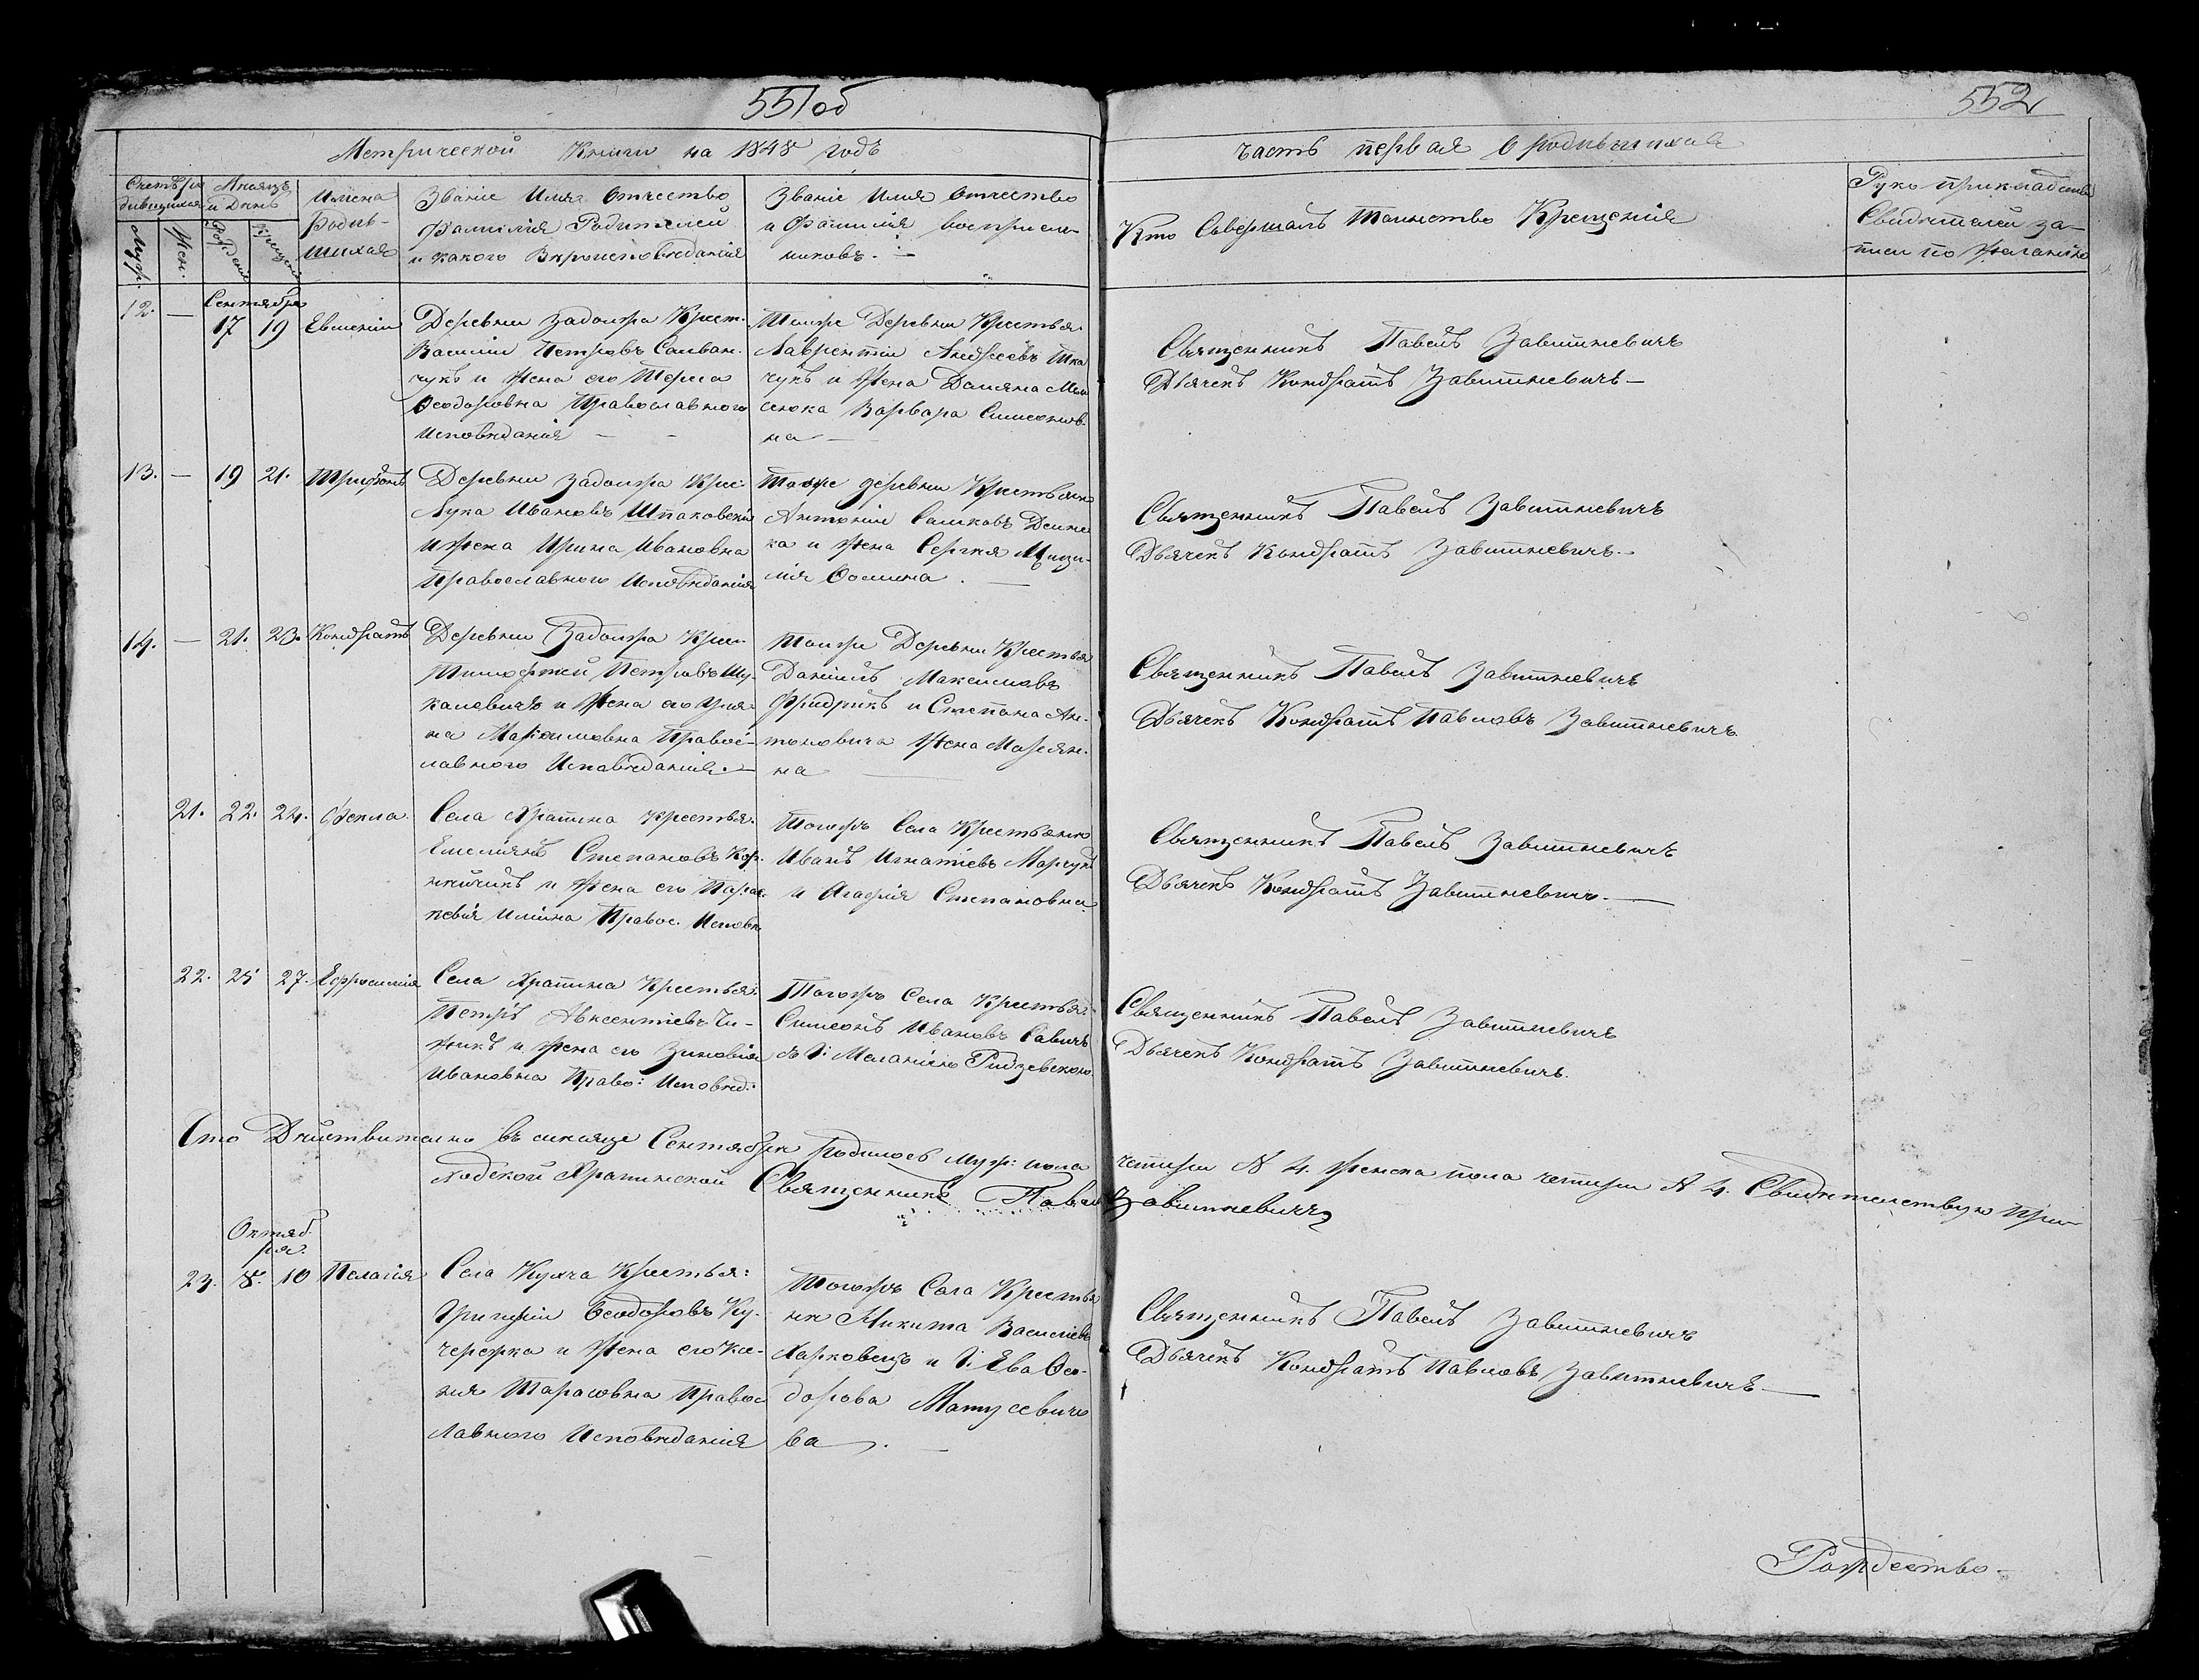 551об
552
Метрической Книги на 1848 годъ
часть первая о родившихся
Счетъ ро
дившихся
Муж.
Жен.
Мѣсяцъ
и День
Рожденія
Крещенія
Имена
Родив-
шихся
Званіе Имя Отчество
Фамилія Родителей
и какого Вѣроисповѣданія
Званіе Имя Отчество
и Фамилія воспріем-
никовъ.
Кто Совершалъ Таинство Крещенія
Руко прикладство
Свидѣтелей за-
писи по желанію
Сентября
12. — 17 19 Евменій
Деревни Задолжа Крест.
Василій Петровъ
чукъ и жена его
Ѳеодоровна Православного
Исповѣданія
Тоиже Деревни Крестья.
Лаврентій Андреевъ Тка
чукъ и жена Даміяна
Варвара Симеонов-
на
Священникъ Павелъ Завитневичъ
Дьячекъ Кондратъ Завитневичъ —
13. — 19 21. Трифонъ
Деревни Задолжа Крес.
Лука Ивановъ Шпаковскій
и жена Ирина Ивановна
Православного Исповѣданія
Тоиже деревни Крестьян
Антоній
ка и жена Сергія
Ѳомина.
Священникъ Павелъ Завитневичъ
Дьячекъ Кондратъ Завитневичъ.
14. — 21. 23. Кондратъ
Деревни Задолжа Крес.
Тимофей Петровъ Шу-
каловичъ и жена его Улья-
на Максимовна Правос-
лавного Исповѣданія. —
Тоиже Деревни Крестья
Даніилъ Максимовъ
Фридрикъ и Степана Ан-
тоновича жена Марьян-
на
Священникъ Павелъ Завитневичъ
Дьячекъ Кондратъ Павловъ Завитневичъ
21. 22. 24. Фекла
Села Храпина Крестья.
Емеліянъ Степановъ Кор-
и жена его Парас-
кевія Ильина Правос. Исповѣ
Тогожъ Села Крестьянин
Иванъ Игнатіевъ Марчукъ
и Агафія Степановна
Священникъ Павелъ Завитневичъ
Дьячекъ Кондратъ Завитневичъ. —
22. 25 27. Ефросинія
Села Храпина Крестья:
Петръ Авксентіевъ Чи-
жикъ и жена его Зиновія
Ивановна Право: Исповѣд:
Тогожъ Села Крестья:
Симеонъ Ивановъ Савичъ
Меланіею
Священникъ Павелъ Завитневичъ
Дьячекъ Кондратъ Завитневичъ.
Сто Дѣйствително въ мѣсяце Сентябрѣ родилось муж: пола четири № 4. женска пола четири № 4. Свидѣтелствую При
ходской Храпинской Священникъ Павелъ Завитневичъ
Октяб
ря.
23. 8. 10 Пелагія
Села Кухча Крестья:
Григорій Ѳеодоровъ Ку-
чережка и жена его Ксе-
нія Тарасовна Правос
лавного Исповѣданія
Тогожъ Села Крестья
не Никита Василіевъ
Харковецъ и Д: Ева Ѳео-
дорова Матусевичо
ва.
Священникъ Павелъ Завитневичъ
Дьячекъ Кондратъ Павловъ Завитневичъ —
Рождество